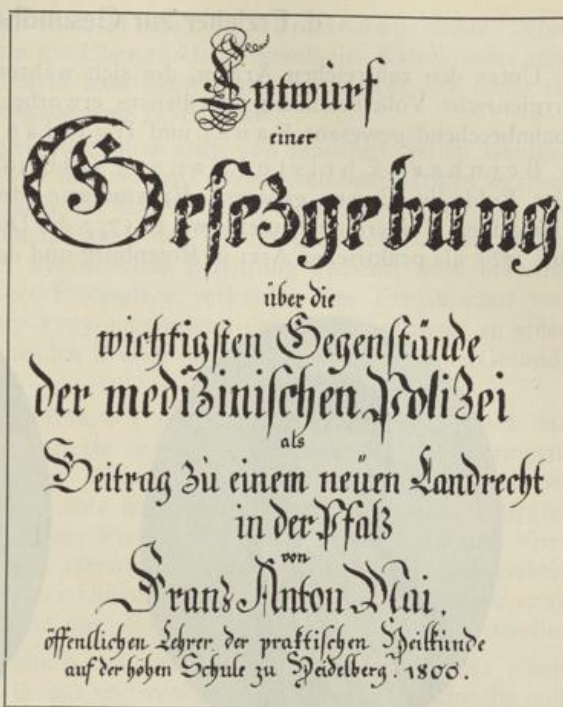 Entwurf
einer
Gesezgebung
über die
wichtigsten Gegenstände
der medizinischen Polizei
als
Beitrag zu einem neuen Landrecht
in der Pfalz
von
Franz Anton Mai.
öffentlichen Lehrer der praktischen Heilkunde
auf der hohen Schule zu Heidelberg. 1800.